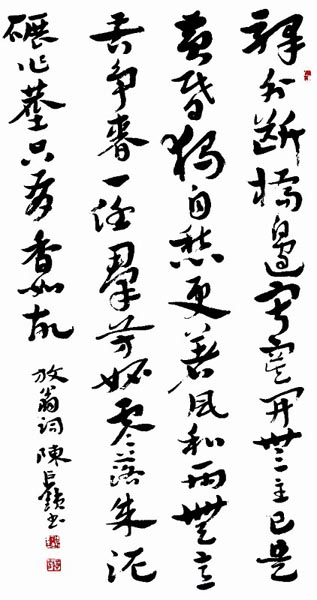 驛外斷橋邊寂寞開無主已是
黃昏獨自愁更著風和雨無意
苦爭春一任羣芳妒零落成泥
碾作塵只有香如故
放翁詞陳巨鎖書